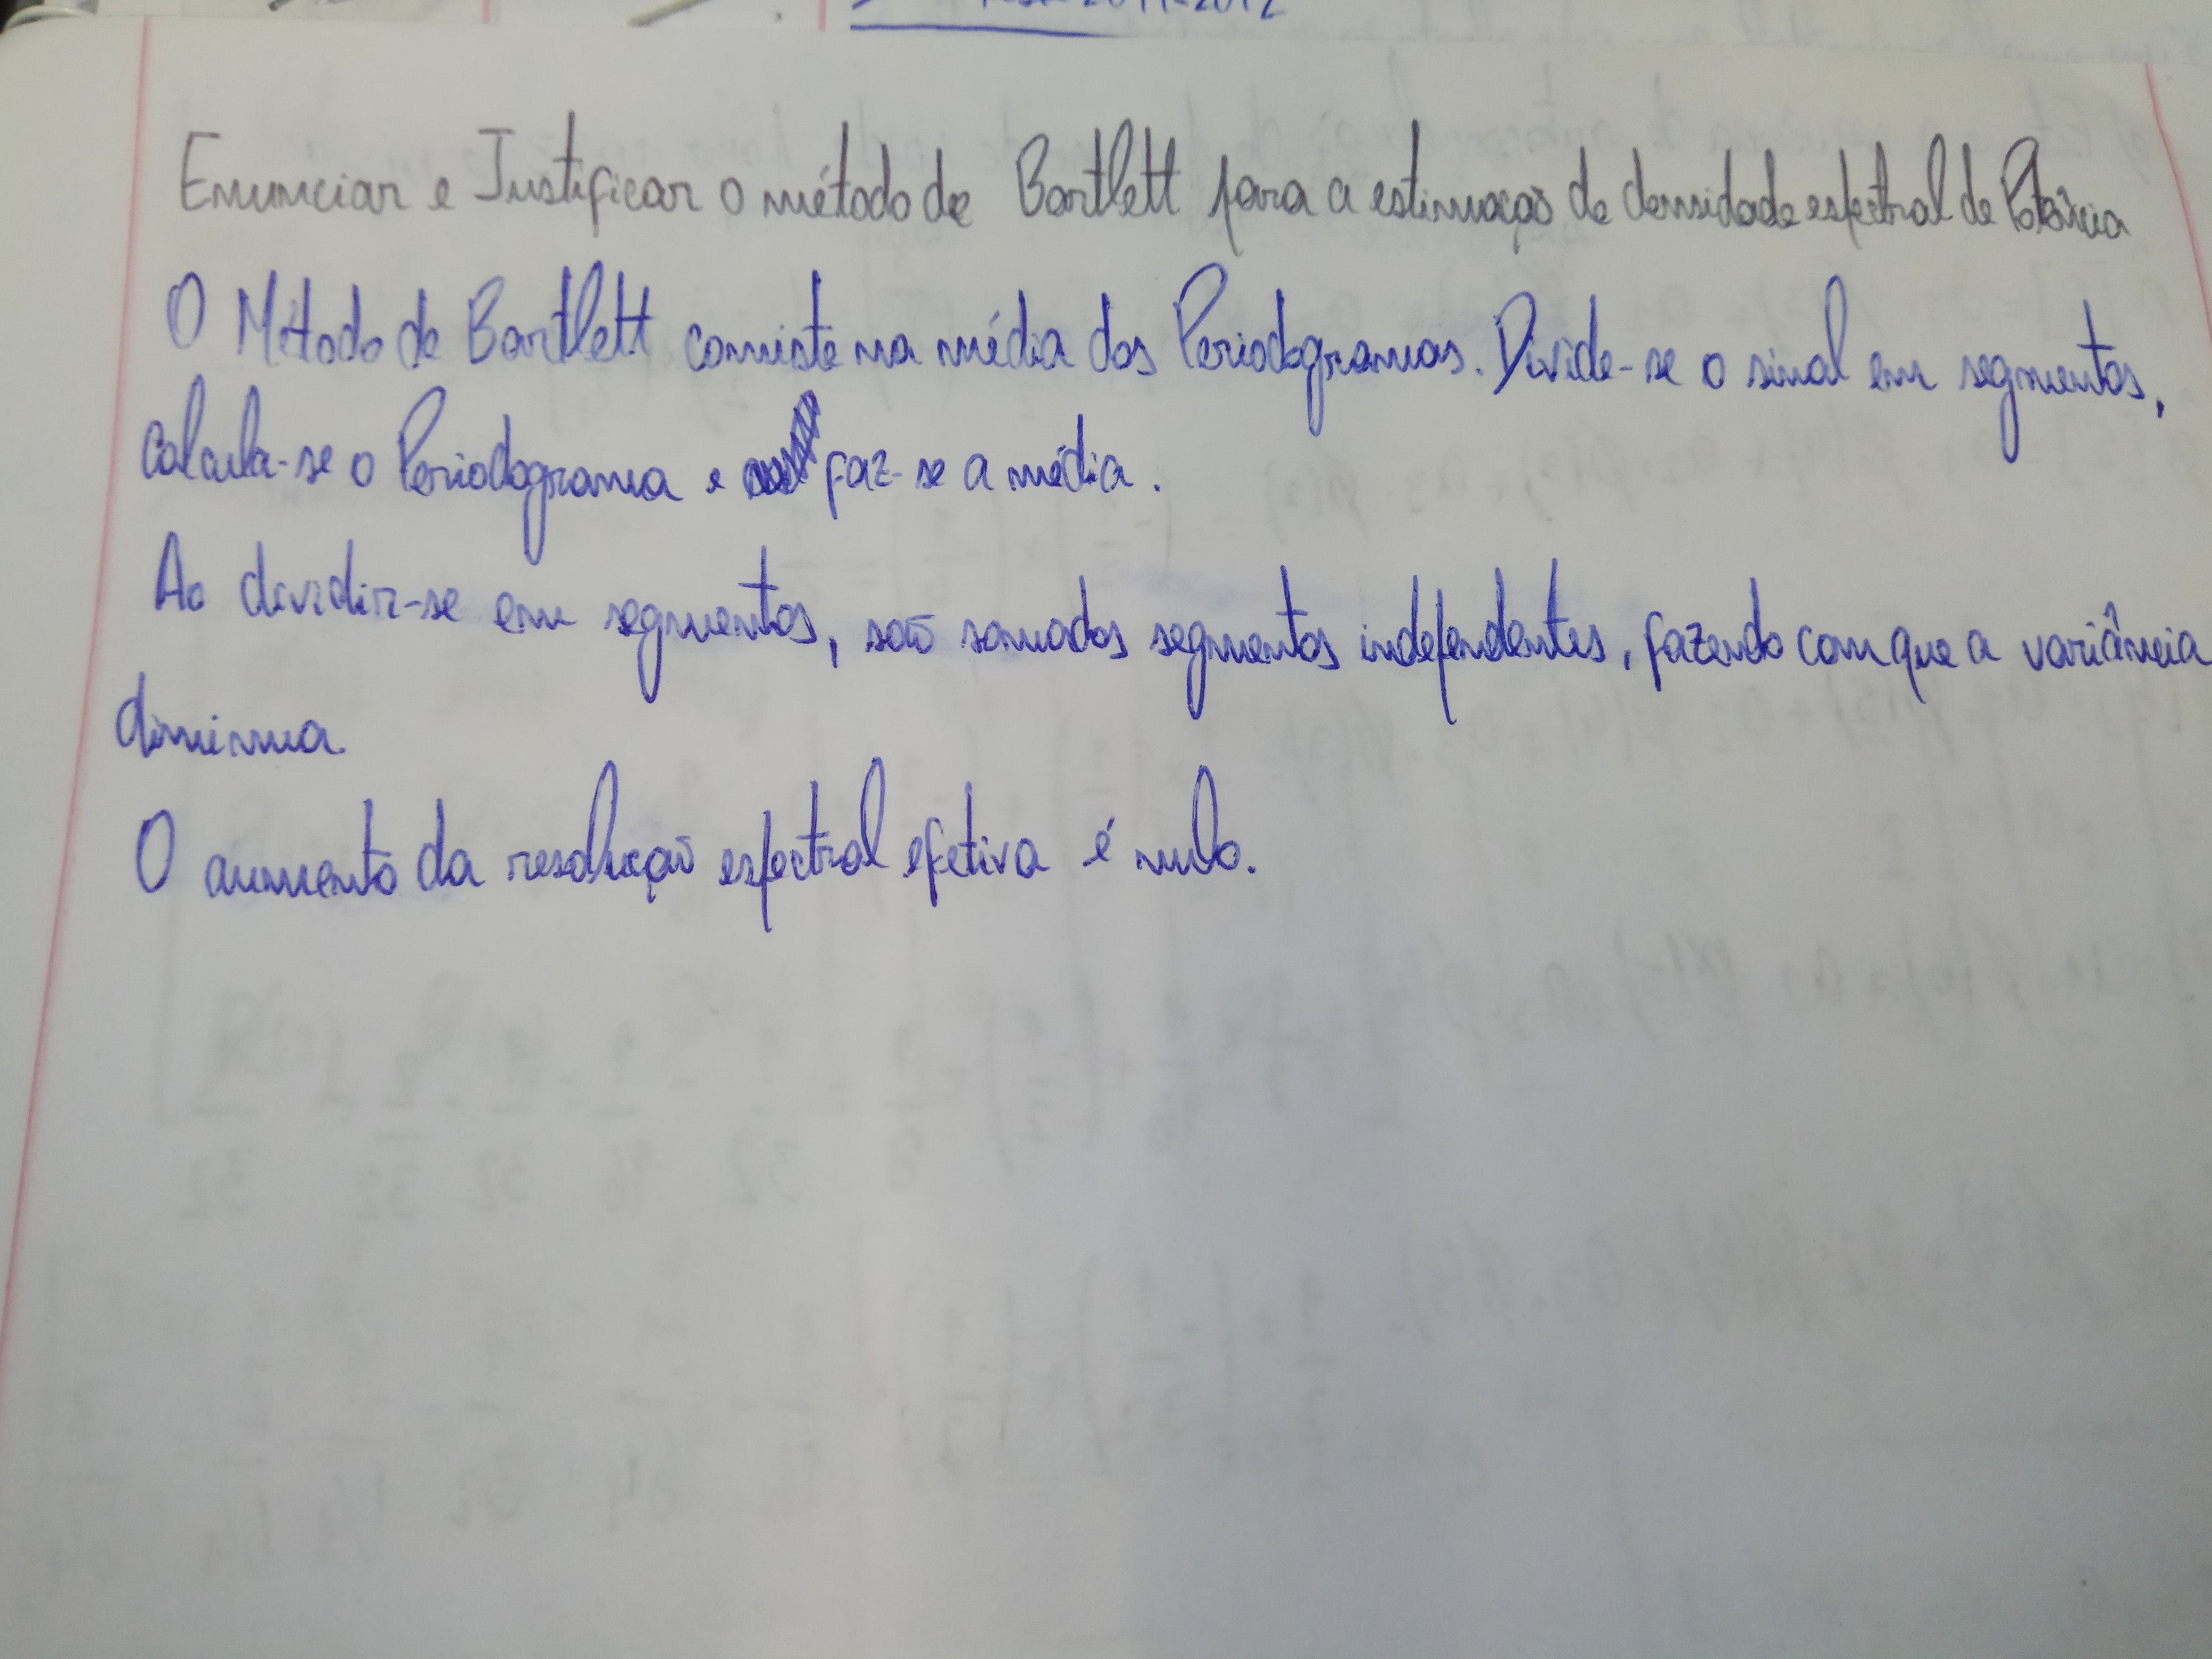 2011-2012
Enunciar e Justificar o método de Bartlett para a estimação de densidade espectral de Potência
O Método de Bartlett consiste na média dos Periodogramas. Divide-se o sinal em segmentos,
Calcula-se o Periodograma e faz-se a média.
Ao dividir-se em segmentos, são somados segmentos independentes, fazendo com que a variância
diminua.
O aumento da resolução espectral efetiva é nulo.